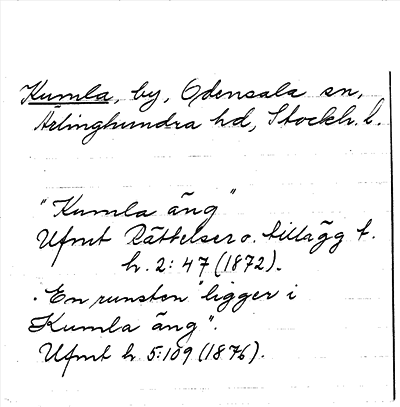 Kumla, by, Odensala sn,
Ärlinghundra hd, Stockh. l.
"Kumla äng"
Ufmt Rättelser o. tillägg t.
h. 2: 47 (1872).
. En runsten "ligger i
Kumla äng".
Ufmt h. 5:109 (1876).